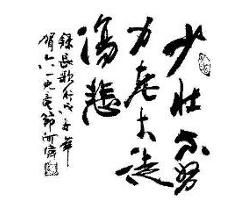 少壮不努
力老大徒
傷悲
錄長歌行
賀六一兒童節